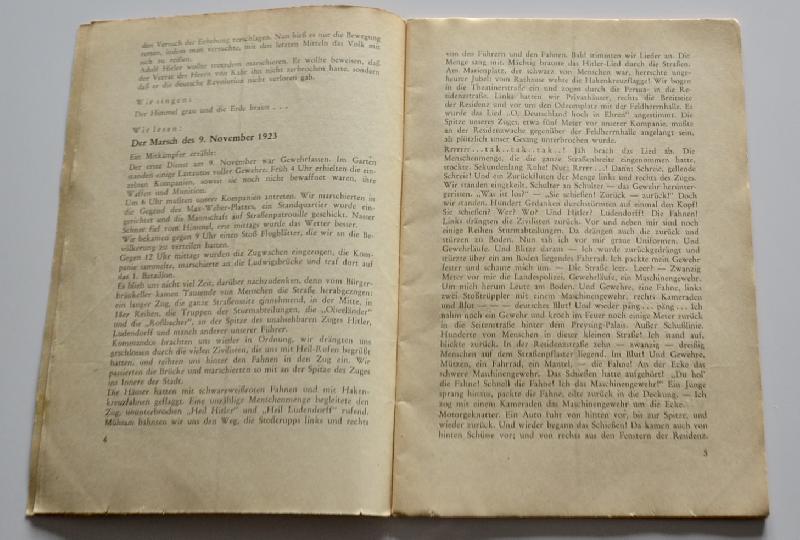 den Versuch der Erhebung zerschlagen. Nun hieß es nur die Bewegung
retten, indem man versuchte, mit den letzten Mitteln das Volk mit
sich zu reißen.
Adolf Hitler wollte trotzdem marschieren. Er wollte beweisen, daß
der Verrat des Herrn von Kahr ihn nicht zerbrochen hatte, sondern
daß er die deutsche Revolution nicht verloren gab.
Wir singen:
Der Himmel grau und die Erde braun . . .
Wir lesen:
Der Marsch des 9. November 1923
Ein Mitkämpfer erzählt:
Der erste Dienst am 9. November war Gewehrfassen. Im Garten
standen einige Lastautos voller Gewehre. Früh 4 Uhr erhielten die ein-
zelnen Kompanien, soweit sie noch nicht bewaffnet waren, ihre
Waffen und Munition.
Um 6 Uhr mußten unsere Kompanien antreten. Wir marschierten in
die Gegend des Max-Weber-Platzes, ein Standquartier wurde ein-
gerichtet und die Mannschaft auf Straßenpatrouille geschickt. Nasser
Schnee fiel vom Himmel, erst mittags wurde das Wetter besser.
Wir bekamen gegen 9 Uhr einen Stoß Flugblätter, die wir an die Be-
völkerung zu verteilen hatten.
Gegen 12 Uhr mittags wurden die Zugwachen eingezogen, die Kom-
panie sammelte, marschierte an die Ludwigsbrücke und traf dort auf
das 1. Bataillon.
Es blieb uns nicht viel Zeit, darüber nachzudenken, denn vom Bürger-
bräukeller kamen Tausende von Menschen die Straße herabgezogen:
ein langer Zug, die ganze Straßenseite einnehmend, in der Mitte, in
16er Reihen, die Truppen der Sturmabteilungen, die „Oberländer"
und die „Roßbacher", an der Spitze des unabsehbaren Zuges Hitler,
Ludendorff und manch anderer unserer Führer.
Kommandos brachten uns wieder in Ordnung, wir drängten uns
geschlossen durch die vielen Zivilisten, die uns mit Heil-Rufen begrüßt
hatten, und reihten uns hinter den Fahnen in den Zug ein. Wir
passierten die Brücke und marschierten so mit an der Spitze des Zuges
ins Innere der Stadt.
Die Häuser hatten mit schwarzweißroten Fahnen und mit Haken-
kreuzfahnen geflaggt. Eine unzählige Menschenmenge begleitete den
Zug, ununterbrochen „Heil Hitler" und „Heil Ludendorff" rufend.
Mühsam bahnten wir uns den Weg, die Stoßtrupps links und rechts
4
von den Führern und den Fahnen. Bald stimmten wir Lieder an. Die
Menge sang mit. Mächtig brauste das Hitler-Lied durch die Straßen.
Am Marienplatz, der schwarz von Menschen war, herrschte unge-
heurer Jubel! Vom Rathause wehte die Hakenkreuzflagge! Wir bogen
in die Theatinerstraße ein und zogen durch die Perusa- in die Re-
sidenzstraße. Links hatten wir Privathäuser, rechts die Breitseite
der Residenz und vor uns den Odeonsplatz mit der Feldherrnhalle. Es
wurde das Lied „O, Deutschland hoch in Ehren" angestimmt. Die
Spitze unseres Zuges, etwa fünf Meter vor unserer Kompanie, mußte
an der Residenzwache gegenüber der Feldherrnhalle angelangt sein,
als plötzlich unser Gesang unterbrochen wurde.
Rrrrrr . . . tak . . tak . . tak . . ! Jäh brach das Lied ab. Die
Menschenmenge, die die ganze Straßenbreite eingenommen hatte,
stockte. Sekundenlang Ruhe! Nur: Rrrrr . . .! Dann: Schreie, gellende
Schreie! Und ein Zurückfluten der Menge links und rechts des Zuges.
Wir standen eingekeilt, Schulter an Schulter — das Gewehr herunter-
gerissen. „Was ist los?" — „Sie schießen! Zurück — zurück!" Doch
wir standen. Hundert Gedanken durchstürmten auf einmal den Kopf!
Sie schießen? Wer? Wo? Und Hitler? Ludendorff? Die Fahnen!
Links drängten die Zivilisten zurück. Vor und neben mir sind noch
einige Reihen Sturmabteilungen. Da drängen auch die zurück und
stürzen zu Boden. Nun sah ich vor mir graue Uniformen. Und
Gewehrläufe. Und Blitze daran — Ich wurde zurückgedrängt und
stürzte über ein am Boden liegendes Fahrrad. Ich packte mein Gewehr
fester und schaute mich um. — Die Straße leer. Leer? — Zwanzig
Meter vor mir die Landespolizei. Gewehrläufe, ein Maschinengewehr.
Um mich herum Leute am Boden. Und Gewehre, eine Fahne, links
zwei Stoßtruppler mit einem Maschinengewehr, rechts Kameraden
und Blut — — — deutsches Blut! Und wieder päng . . . päng. . . Ich
nahm noch ein Gewehr und kroch im Feuer noch einige Meter zurück
in die Seitenstraße hinter dem Preysing-Palais. Außer Schußlinie.
Hunderte von Menschen in dieser kleinen Straße! Ich stand auf,
blickte zurück. In der Residenzstraße zehn — zwanzig — dreißig
Menschen auf dem Straßenpflaster liegend. Im Blut! Und Gewehre,
Mützen, ein Fahrrad, ein Mantel, — die Fahne! An der Ecke das
schwere Maschinengewehr. Das Schießen hatte aufgehört! „Du hol'
die Fahne! Schnell die Fahne! Ich das Maschinengewehr!" Ein Junge
sprang hinaus, packte die Fahne, eilte zurück in die Deckung. — Ich
zog mit einem Kameraden das Maschinengewehr um die Ecke.
Motorgeknatter. Ein Auto fuhr von hinten vor, bis zur Spitze, und
wieder zurück. Und wieder begann das Schießen! Da kamen auch von
hinten Schüsse vor; und von rechts aus den Fenstern der Residenz.
5